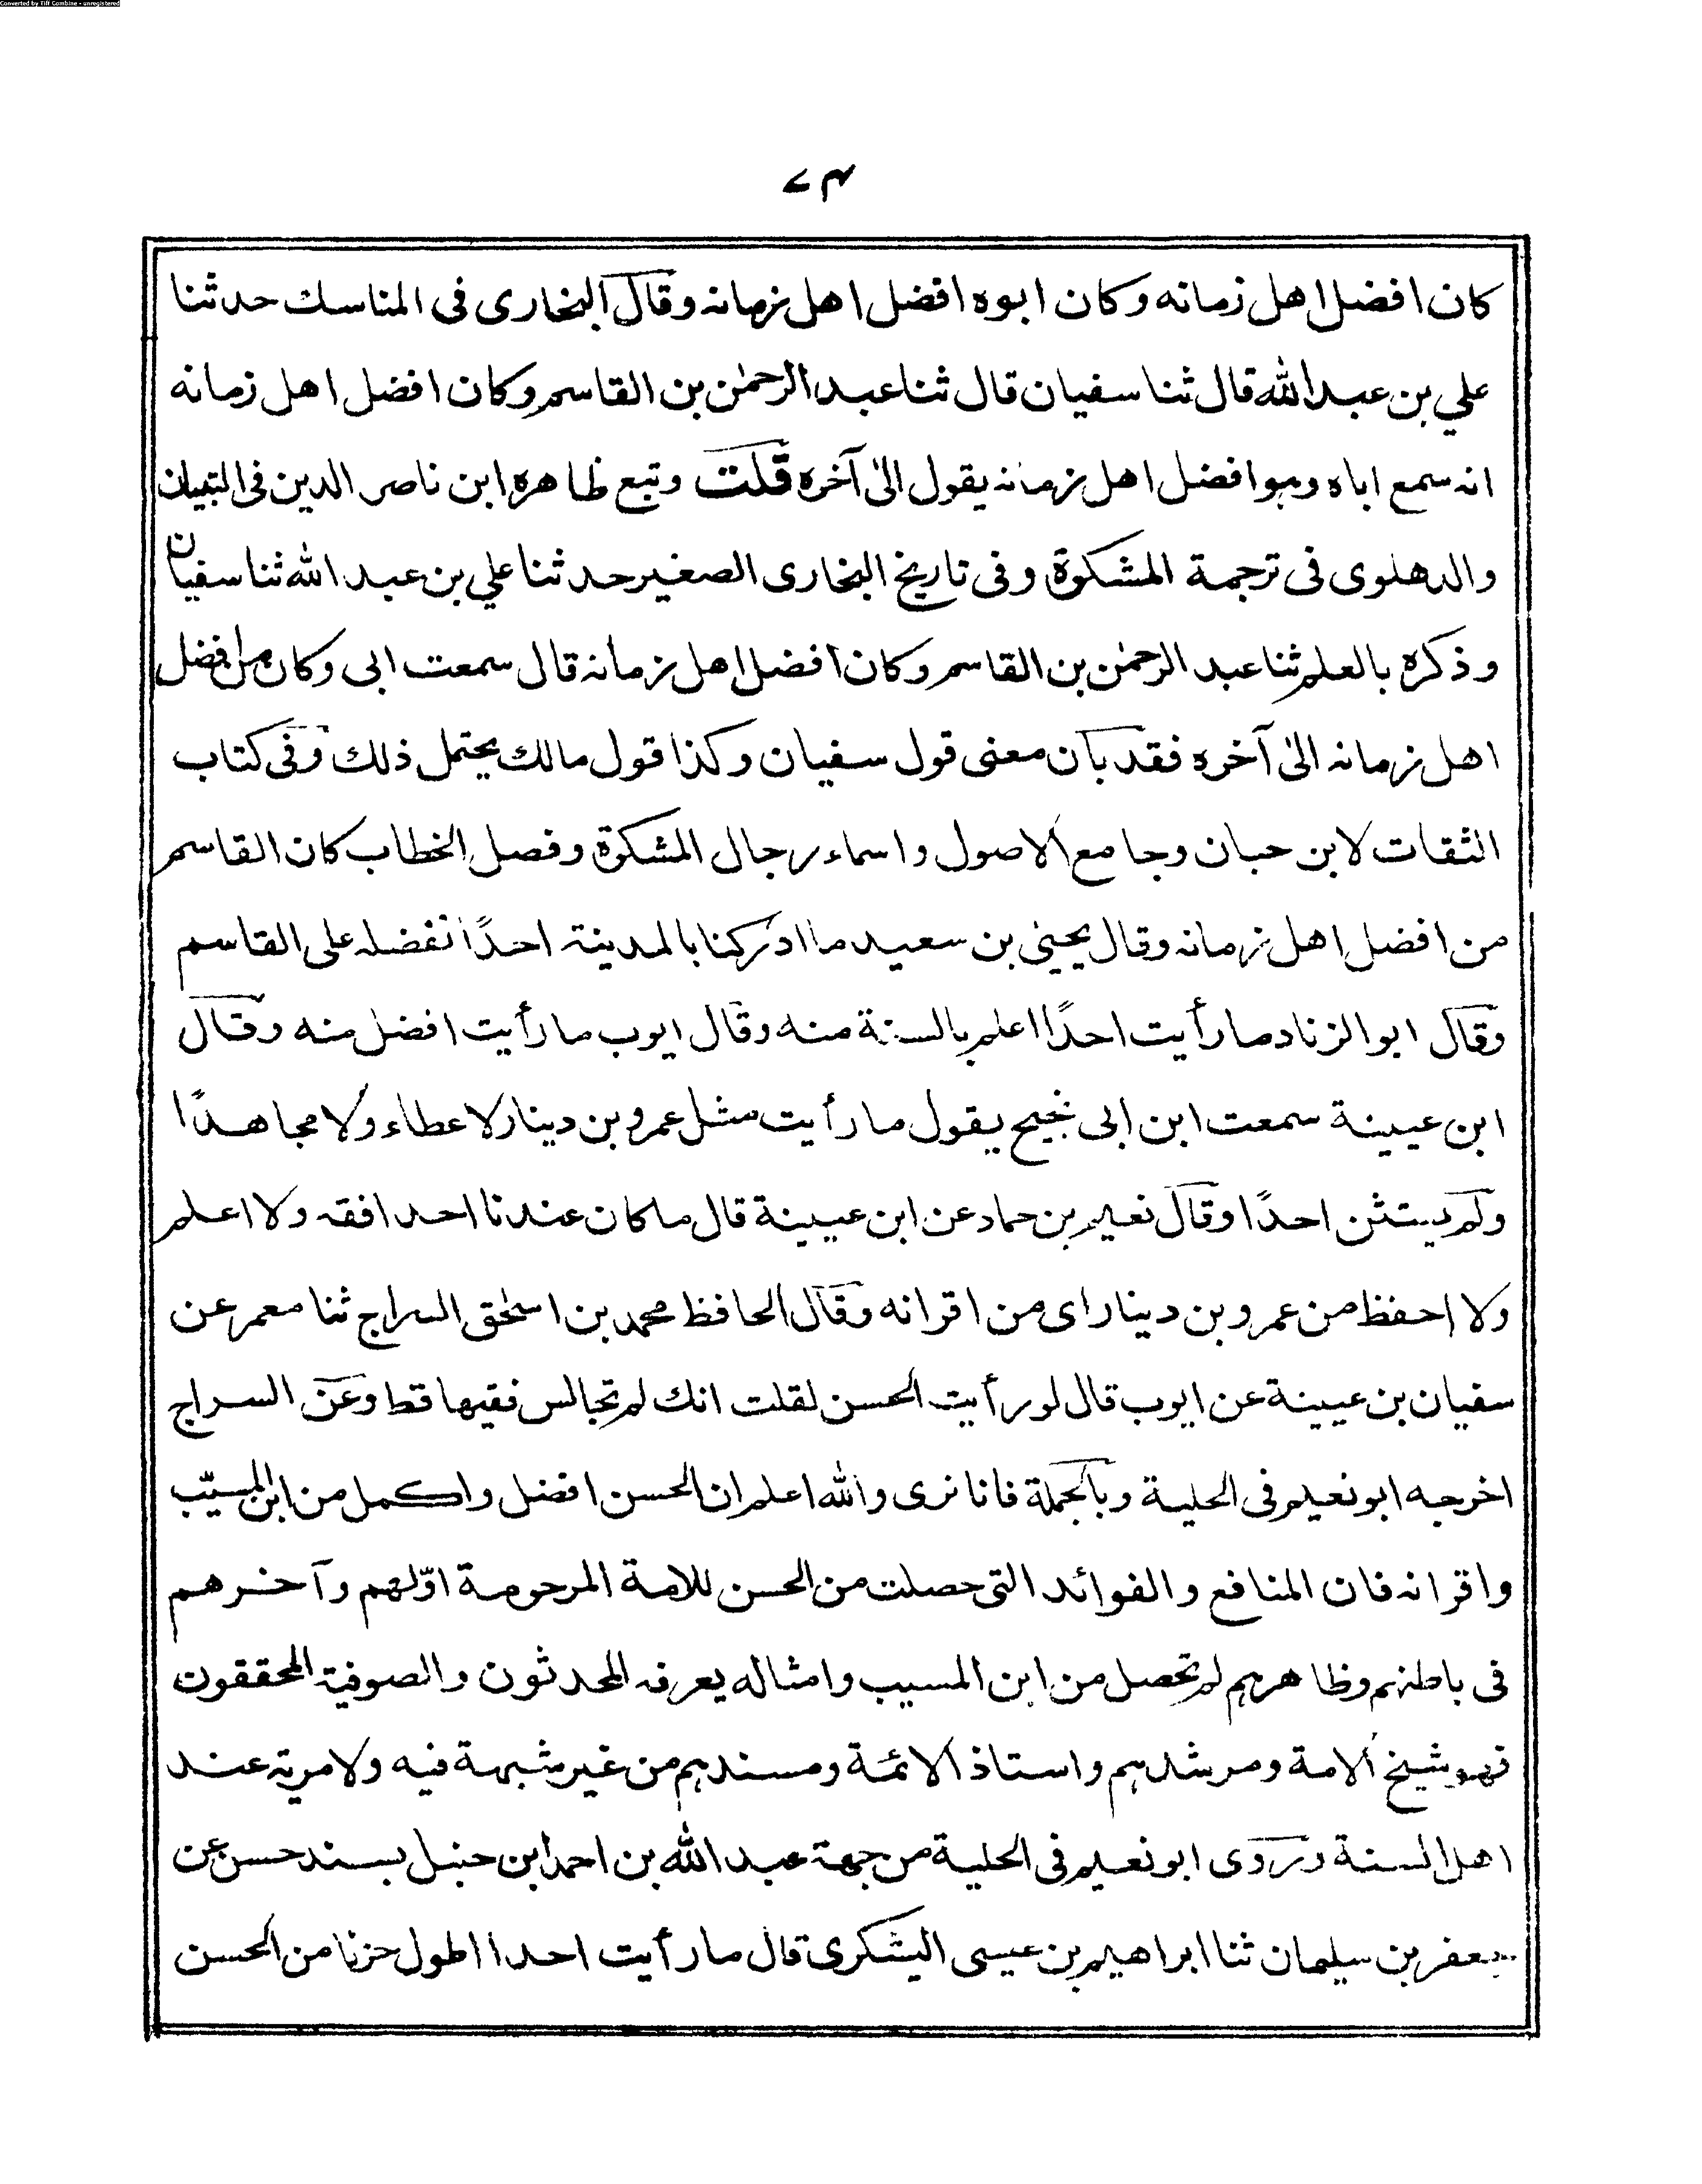 Converted by Tiff Combine - unregistered
۴۷
كان افضل اهل زمانه وكان ابوه افضل اهل زمانه وقال البخارى فى المناسك حدثنا
علي بن عبد الله قال ثنا سفيان قال ثنا عبد الرحمٰن بن القاسم وكان افضل اهل زمانه
انه سمع اباه وهو افضل اهل زمانه يقول الىٰ آخره قلت وتبع ظاهره ابن ناصر الدين فى التبيان
والدهلوى فى ترجمة المشكوة وفى تاريخ البخارى الصغير حدثنا علي بن عبد الله ثنا سفيان
وذكره بالعلم ثنا عبد الرحمٰن بن القاسم وكان افضل اهل زمانه قال سمعت ابى وكان من افضل
اهل زمانه الىٰ آخره فقد بان معنى قول سفيان وكذا قول مالك يحتمل ذلك وفى كتاب
الثقات لابن حبان وجامع الاصول واسماء رجال المشكوة وفصل الخطاب كان القاسم
من افضل اهل زمانه وقال يحيٰى بن سعيد ما ادركنا بالمدينة احدًا نفضله على القاسم
وقال ابو الزناد ما رأيت احدًا اعلم بالسنة منه وقال ايوب ما رأيت افضل منه وقال
ابن عيينة سمعت ابن ابى نجيح يقول ما رأيت مثل عمرو بن دينار لا عطاء ولا مجاهدًا
ولم يستثن احدًا وقال نعيم بن حماد عن ابن عيينة قال ما كان عندنا احد افقه ولا اعلم
ولا احفظ من عمرو بن دينار اى من اقرانه وقال الحافظ محمد بن اسحٰق السراج ثنا معمر عن
سفيان بن عيينة عن ايوب قال لو رأيت الحسن لقلت انك لم تجالس فقيها قط وعن السراج
اخرجه ابو نعيم فى الحلية وبالجملة فانا نرى والله اعلم ان الحسن افضل واكمل من ابن المسيّب
واقرانه فان المنافع والفوائد التى حصلت من الحسن للامة المرحومة اوّلهم وآخرهم
فى باطنهم وظاهرهم لم تحصل من ابن المسيب وامثاله يعرفه المحدثون والصوفية المحققون
فهو شيخ الامة ومرشدهم واستاذ الائمة ومسندهم من غير شبهة فيه ولا مرية عند
اهل السنة وروى ابو نعيم فى الحلية من جهة عبد الله بن احمد ابن حنبل بسند حسن عن
جعفر بن سليمان ثنا ابراهيم بن عيسى اليشكرى قال ما رأيت احدا اطول حزنا من الحسن